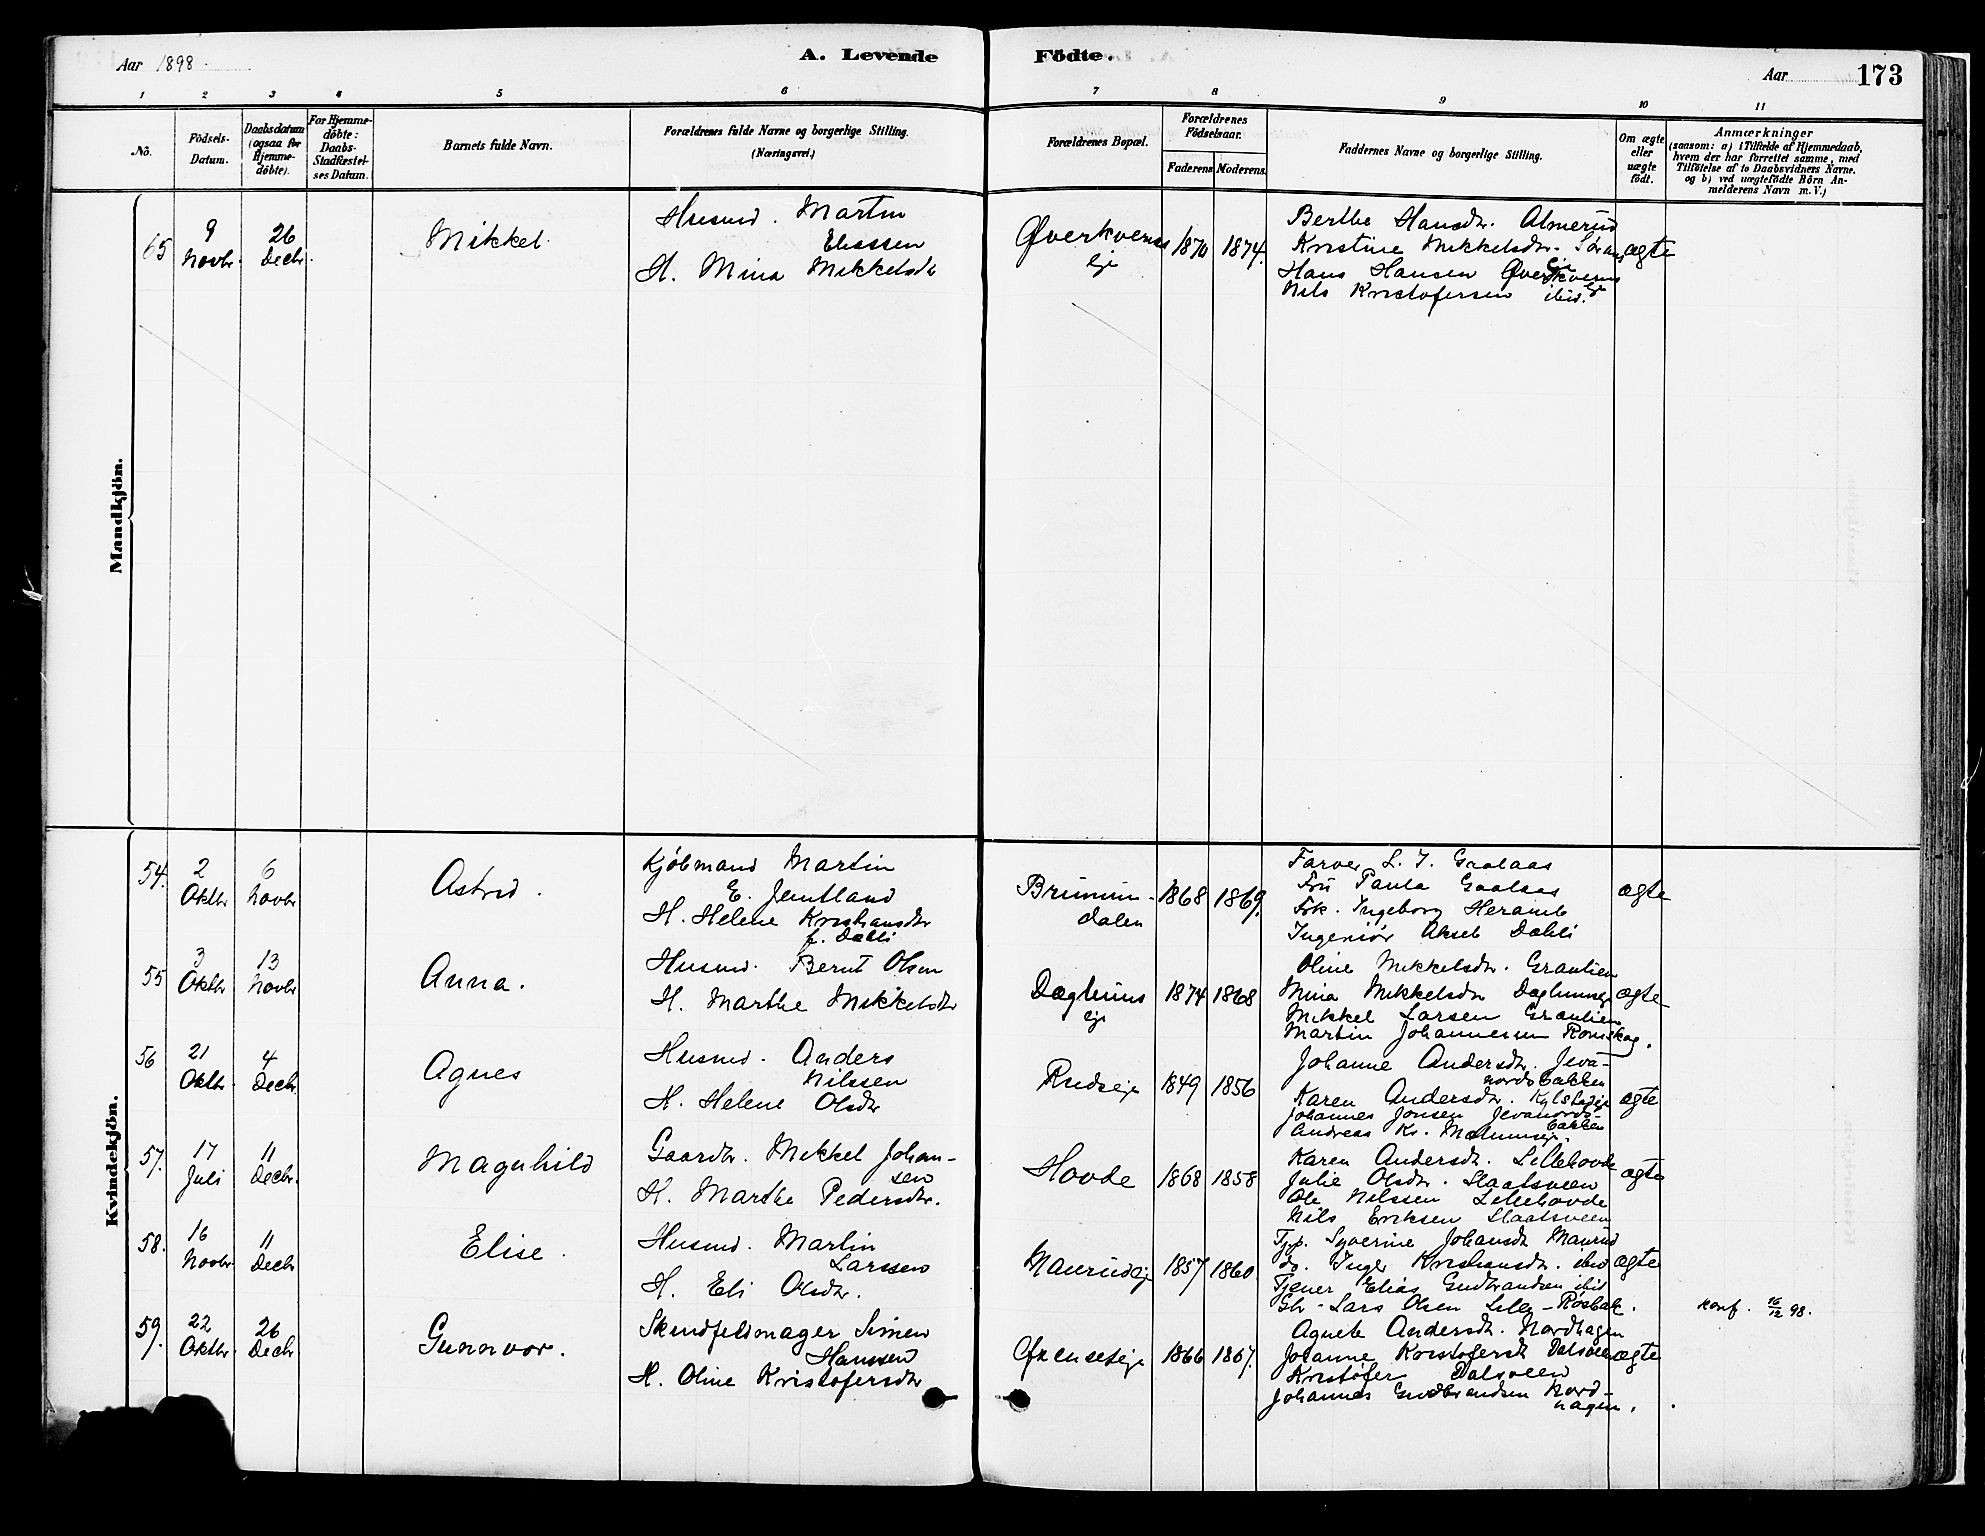 Aar 1898.
A. Levende Födte.
Aar 173
1 2 3 4 5 6 7 8 9 10 11
No.
Födsels-Datum.
Daabsdatum (ogsaa for Hjemme-döbte).
For Hjemme-döbte: Daabs-Stadfæstel-ses Datum.
Barnets fulde Navn.
Forældrenes fulde Navne og borgerlige Stilling.
(Næringsvei.)
Forældrenes Bopæl.
Forældrenes Födselsaar.
Faderens Moderens.
Faddernes Navne og borgerlige Stilling.
Om ægte eller uægte födt.
Anmærkninger
(saasom: a) i Tilfælde af Hjemmedaab,
hvem der har forrettet samme, med
Tilföielse af to Daabsvidners Navne.
og b) ved uægtefödte Börn An-
melderens Navn m. V.)
Mandkjön.
65 9 Novbr. 26 Decbr.
Mikkel.
Husmd. Martin
Eliassen
H. Mina Mikkelsdtr
Øverkverns
eje
1870 1874.
Berthe Hansdtr. Almerud
Kristine Mikkelsdtr.
Hans Hansen Øverkverns
eje
Nils Kristofersen ibid.
ægte
Kvindekjön.
54. 2 Oktbr 6 Novbr
Astrid.
Kjøbmand Martin
E. Jemtland
H. Helene Kristiansdtr
f. Dæhli
Brumun-
dalen
1868 1869.
Farver L. J. Gaalaas
Fru Paula Gaalaas
Frk. Ingeborg Heramb
Ingeniør Aksel Dæhli
ægte
55 3 Oktbr 13 Novbr
Anna.
Husmd. Bernt Olsen
H. Marthe Mikkelsdtr
Dæglums
eje
1874 1868
Oline Mikkelsdtr. Granlien
Mina Mikkelsdtr Dæglumseje
Mikkel Larsen Granlien
Martin Johannesen Romskog.
ægte
56 21 Oktbr. 4 Decbr.
Agnes
Husmd. Anders
Nilssen
H. Helene Olsdtr
Rudseje
1849 1856
Johanne Andersdtr. Jeva-
nordsbakken
Karen Andersdtr.
Johannes Jonsen Jevanords-
bakken
Andreas Kr.
ægte
57. 17 Juli 11 Decbr.
Magnhild
Gaardbr. Mikkel Johan-
sen
H. Marthe Pedersdtr.
Hovde
1868 1858
Karen Andersdtr. Lillehovde
Julie Olsdtr. Slaatsveen
Ole Nilssen Lillehovde
Nils Eriksen Slaatsveen
ægte
58. 16 Novbr. 11 Decbr
Elise.
Husmd. Martin
Larssen
H. Eli Olsdtr.
Maurudeje
1857 1860
Tjp. Syverine Johansdtr Maurud
do. Inger Kristiansdtr. ibid
Tjener Elias Gudbrandsen ibid
Gbr. Lars Olsen Lille-Røsbak.
ægte
Konf. 16/12 98.
59. 22 Oktbr. 26 Decbr
Gunnvor.
Skindfeldmager Simen
Hanssen
H. Oline Kristofersdtr
1866 1867.
Agnete Andersdtr. Nordhagen
Johanne Kristofersdtr Dalsveen
Kristofer Dalsveen
Johannes Gudbrandsen Nord-
hagen.
ægte